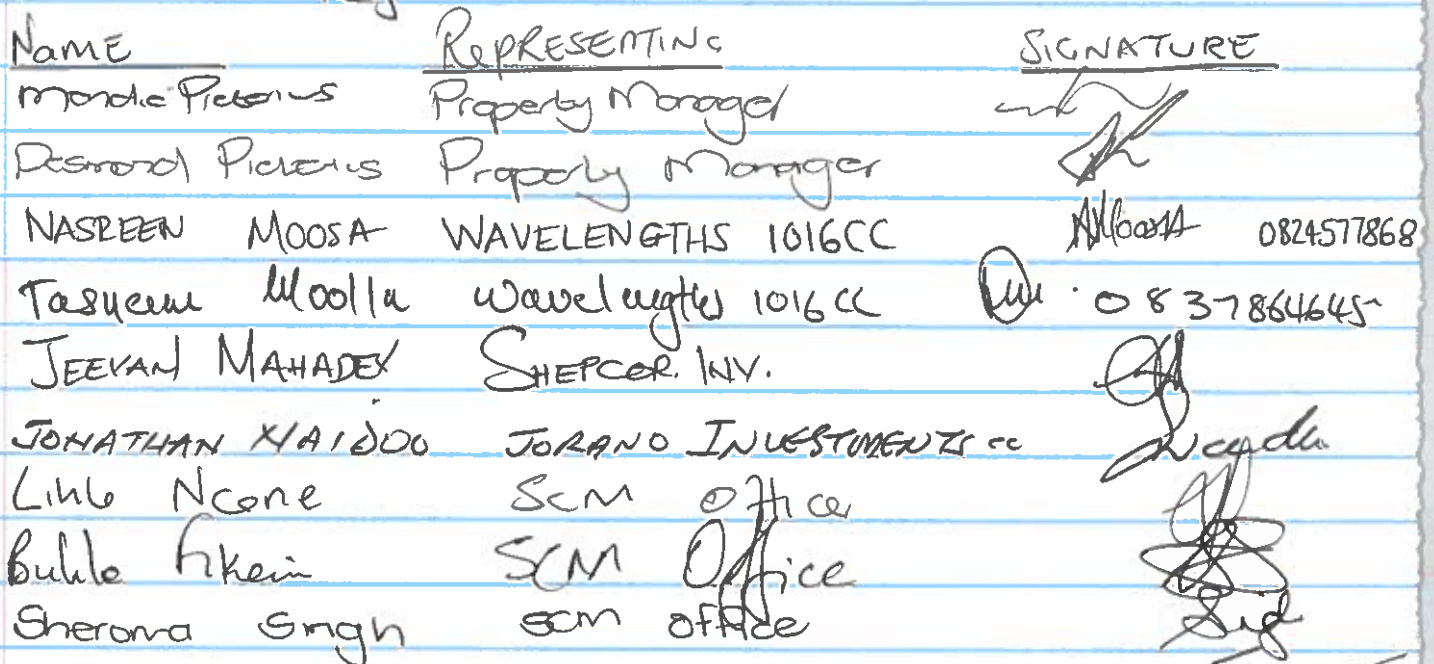 Name REPRESENTING SIGNATURE
Mondie Pretorius Property Manager
Desmond Pretorius Property Manager
NASREEN MOOSA WAVELENGTHS 1016CC AMoosa 0824577868
Tasneem Moolla Wavelengths 1016 CC 0837864645
JEEVAN MAHADEV SHEPCOR. INV.
JONATHAN NAIDOO JORANO INVESTMENTS cc
Lihle Ncane SCM Officer
Buhle SCM Office
Sherona Singh SCM office